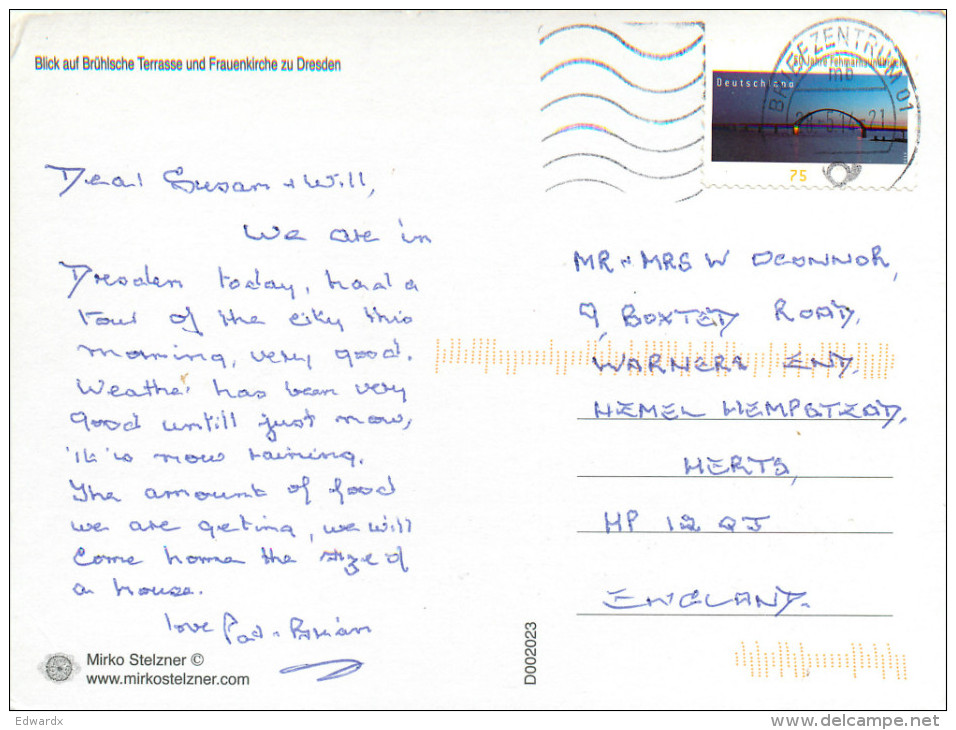 Blick auf Brühlsche Terrasse und Frauenkirche zu Dresden
BRIEFZENTRUM 01
mb
50 Jahre Fehmarnsundbrücke
Deutschland
75
Dear Susan + Will,
We are in
Dresden today, had a
tour of the city this
morning, very good.
Weather has been very
good untill just now,
it is now raining.
The amount of food
we are geting, we will
come home the size of
a house.
love Pat + Brian
MR + MRS W OCONNOR,
9, BOXTED ROAD,
WARNERS END,
HEMEL HEMPSTEAD,
HERTS,
HP 12 QJ
ENGLAND.
Mirko Stelzner ©
www.mirkostelzner.com
D002023
Edwardx
delcampe.net